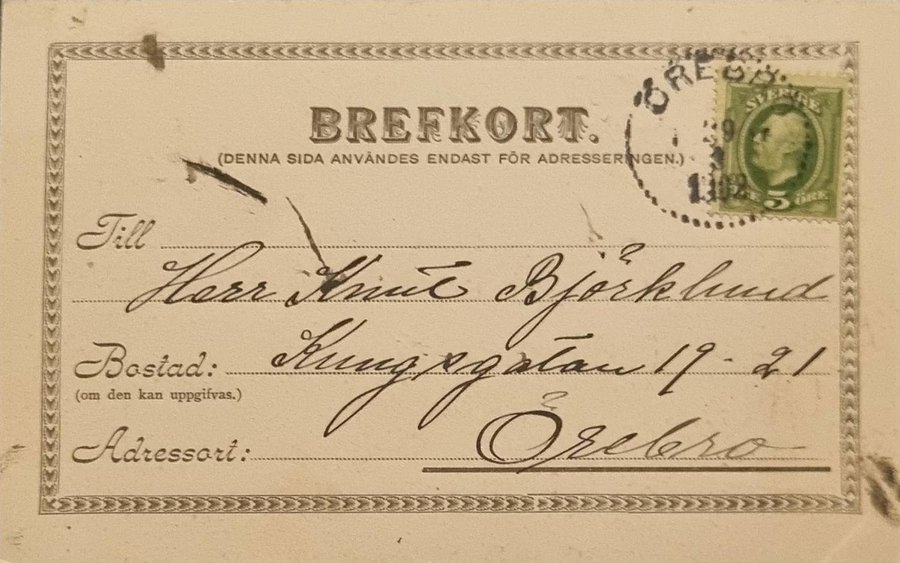 BREFKORT.
(DENNA SIDA ANVÄNDES ENDAST FÖR ADRESSERINGEN.)
ÖREBRO
SVERIGE
29
1902
5 ÖRE
Till
Herr Knut Björklund
Bostad: Kungsgatan 19-21
(om den kan uppgifvas.)
Adressort: Örebro